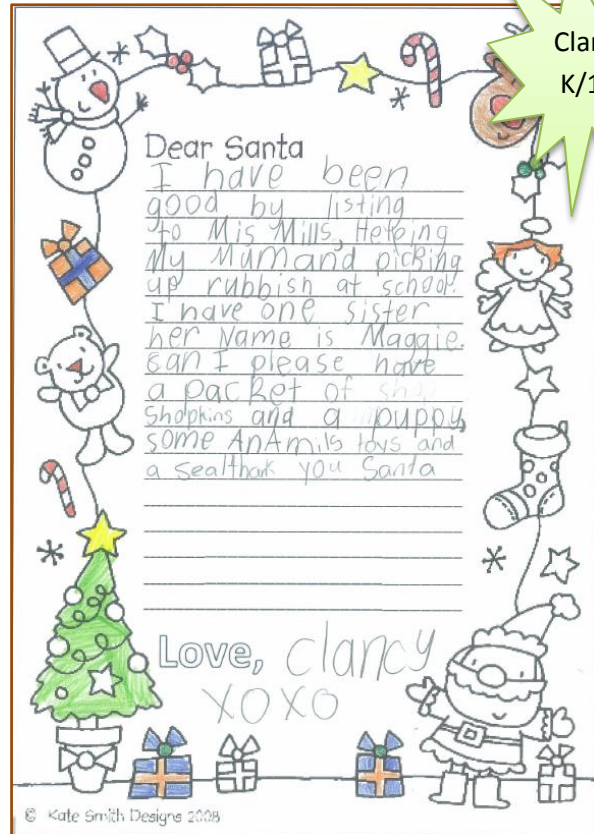 Clan
K/1
Dear Santa
I have been
good by listing
to Mis Mills, Helping
My Mum and picking
up rubbish at school.
I have one sister
her Name is Maggie.
can I please have
a packet of
Shopkins and a puppy,
some AnAmils toys and
a seal thank you Santa
Love, clancy
XOXO
© Kate Smith Designs 2008